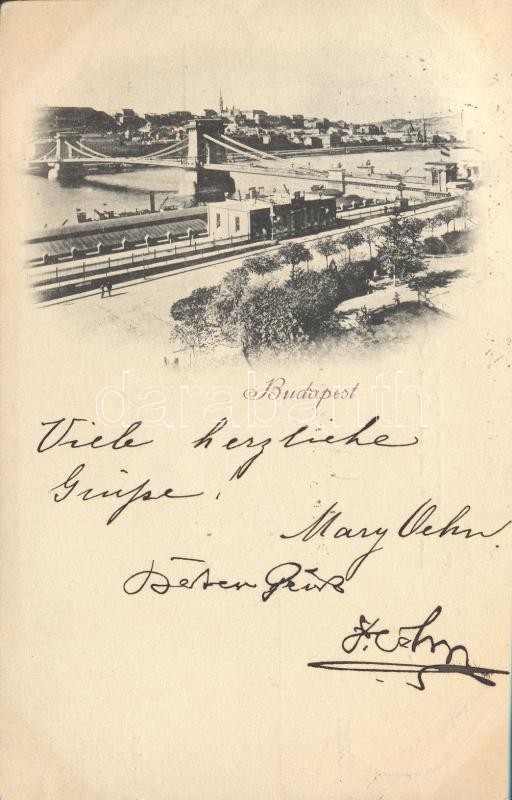 darabanth
Budapest
Viele herzliche
Grüße!
Mary Oehn.
Besten Gruß